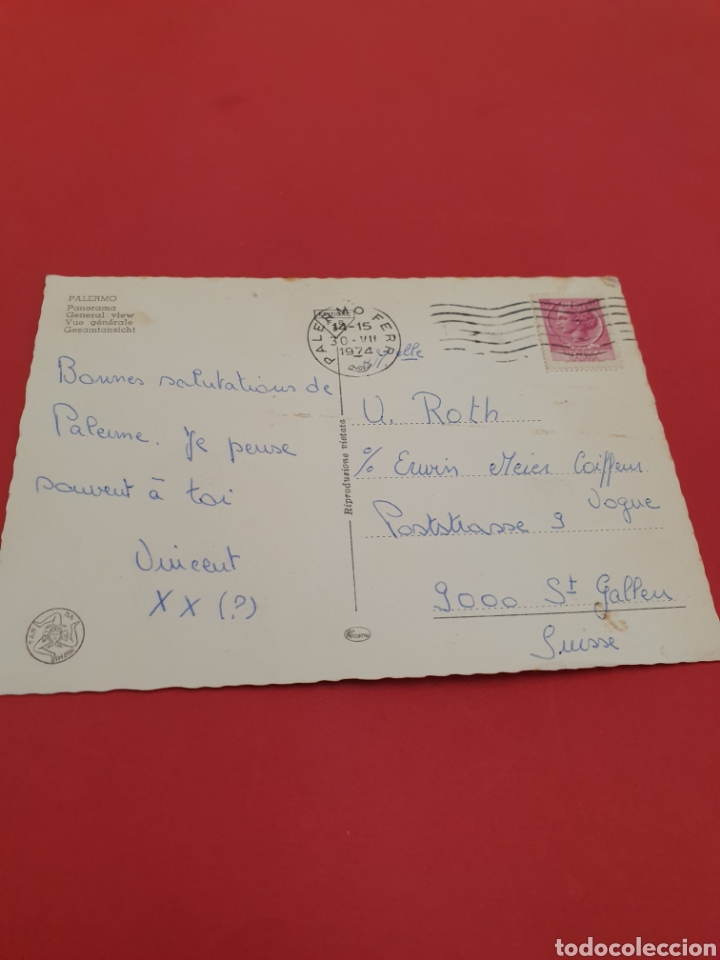 PALERMO
Panorama
General view
Vue générale
Gesamtansicht
PALERMO FERR
14-15
30-VII
1974
Bonnes salutations de
Palerme. Je pense
souvent à toi
Vincent
XX (?)
Riproduzione vietata
U. Roth
% Erwin Meier Coiffeur
Vogue
Poststrasse 9
9000 St Gallen
Suisse
todocoleccion